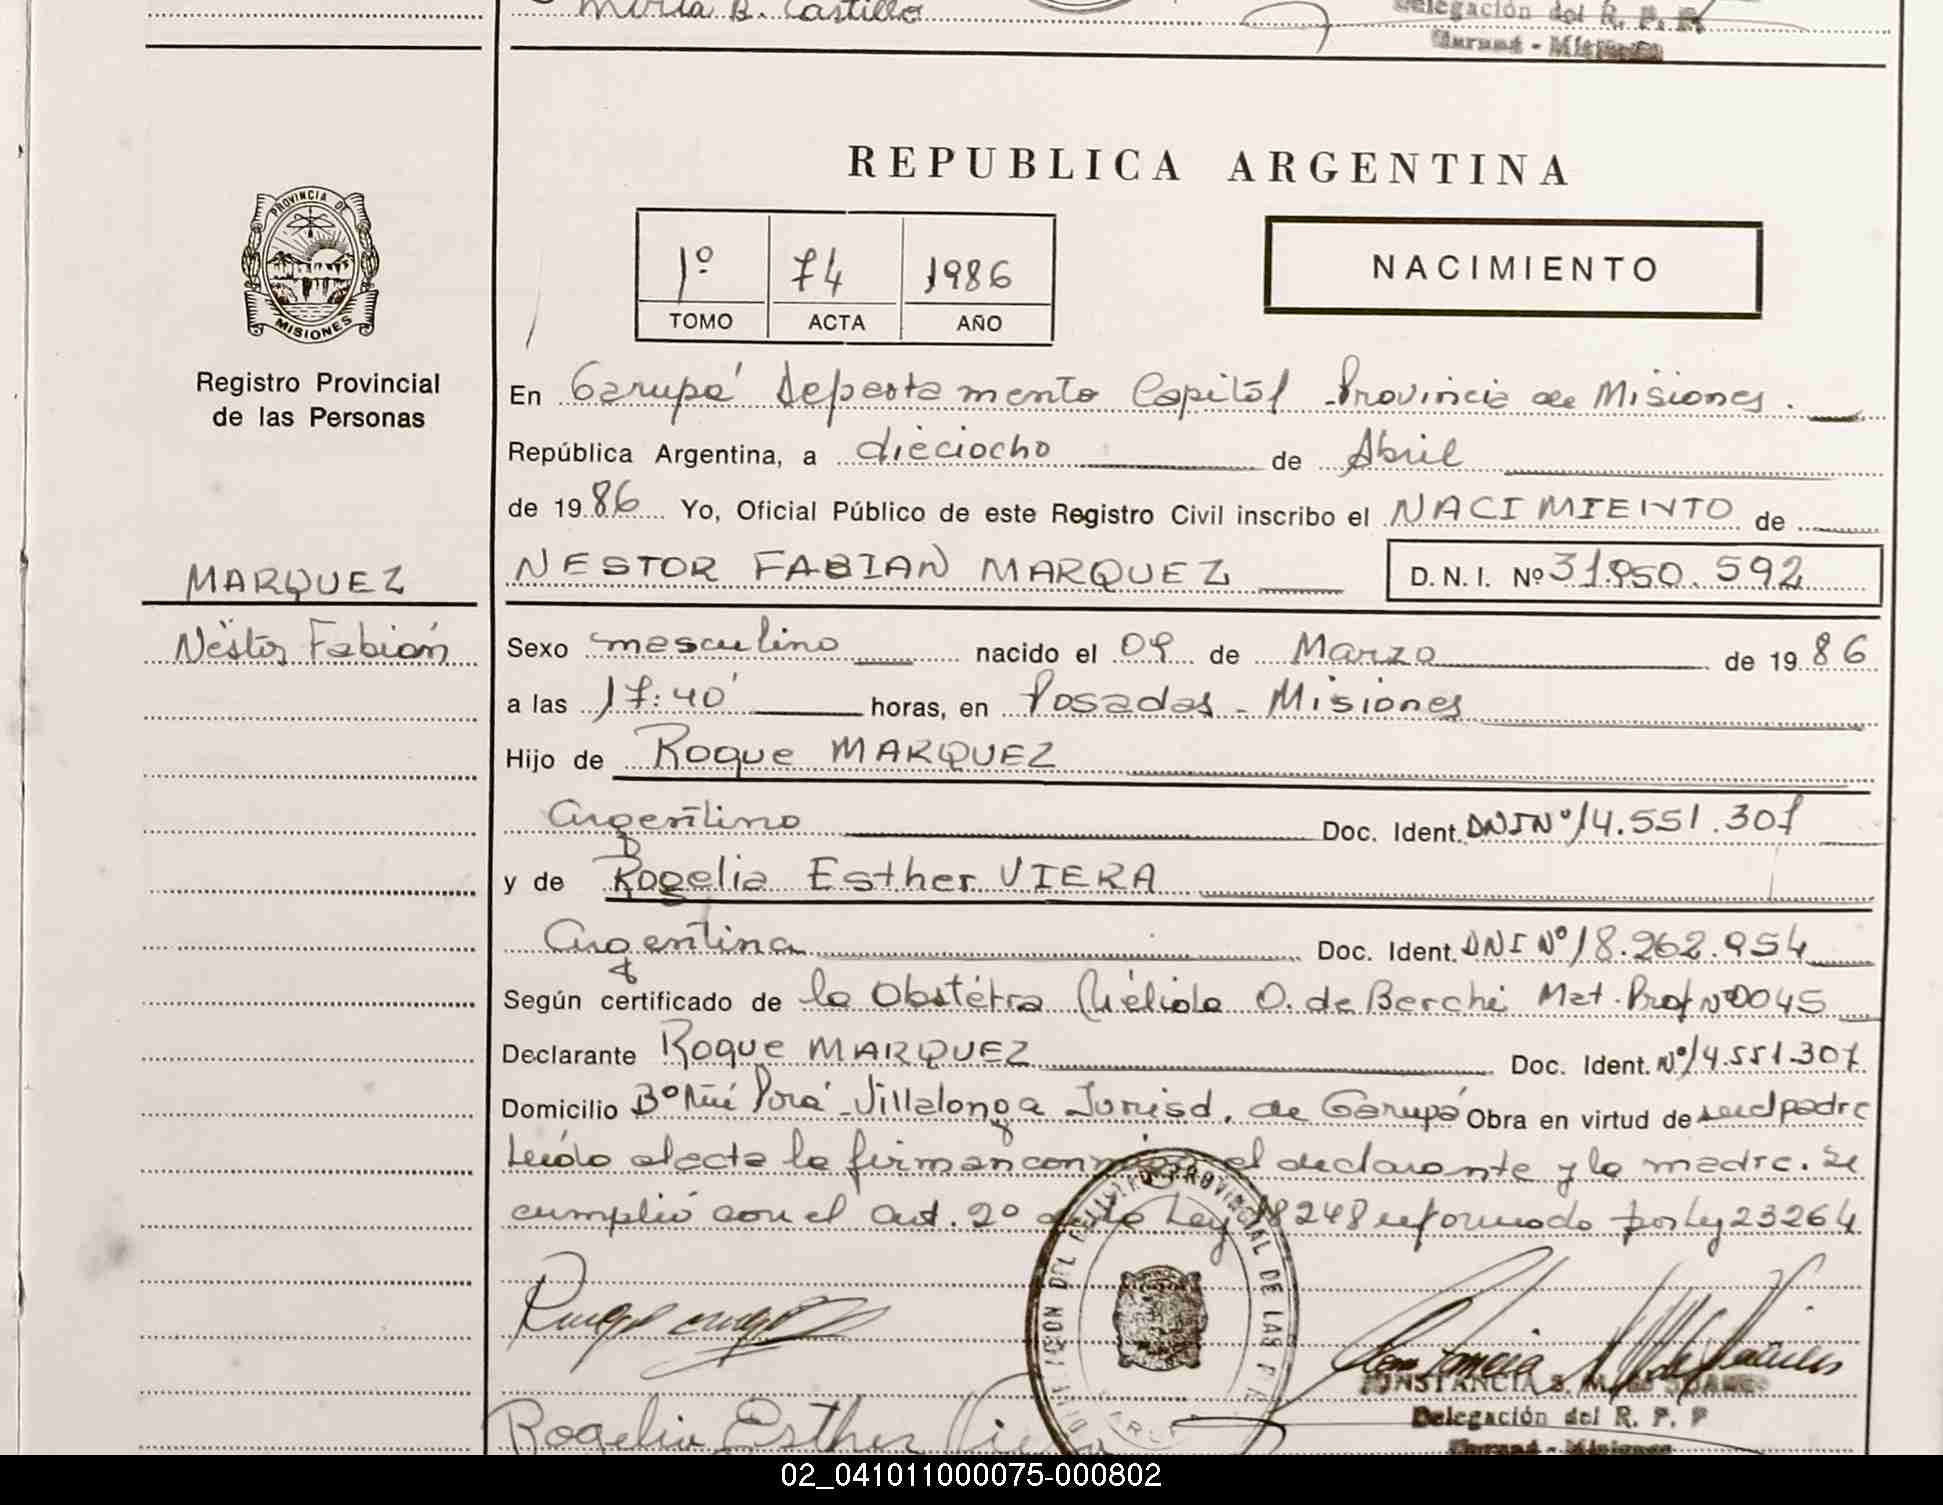 Mirta B. Castillo
Delegación del R. P. P.
Garupá - Misiones
REPUBLICA ARGENTINA
PROVINCIA DE
MISIONES
1º 74 1986
TOMO ACTA AÑO
NACIMIENTO
Registro Provincial
de las Personas
En Garupá Departamento Capital Provincia de Misiones.
República Argentina, a dieciocho de Abril
de 1986 Yo, Oficial Público de este Registro Civil inscribo el NACIMIENTO de
MARQUEZ
NESTOR FABIAN MARQUEZ D.N.I. Nº 31.950.592
Néstor Fabián
Sexo masculino nacido el 09 de Marzo de 1986
a las 17:40 horas, en Posadas - Misiones
Hijo de Roque MARQUEZ
argentino Doc. Ident. DNI Nº 14.551.307
y de Rogelia Esther VIERA
Argentina Doc. Ident. DNI Nº 18.262.954
Según certificado de la Obstétra O. de Berchi Mat. Prof Nº 0045
Declarante Roque MARQUEZ Doc. Ident. Nº 14.551.307
Domicilio Bº Ñú Porá - Villalonga Jurisd. de Garupá Obra en virtud de ser el padre
Leído el acta la firman conmigo el declarante y la madre. Se
cumplió con el art. 2º de la Ley 18248 reformado por Ley 23264
CONSTANCIA S.
Delegación del R. P. P
Rogelia Esther Viera
Garupá - Misiones
02_041011000075-000802